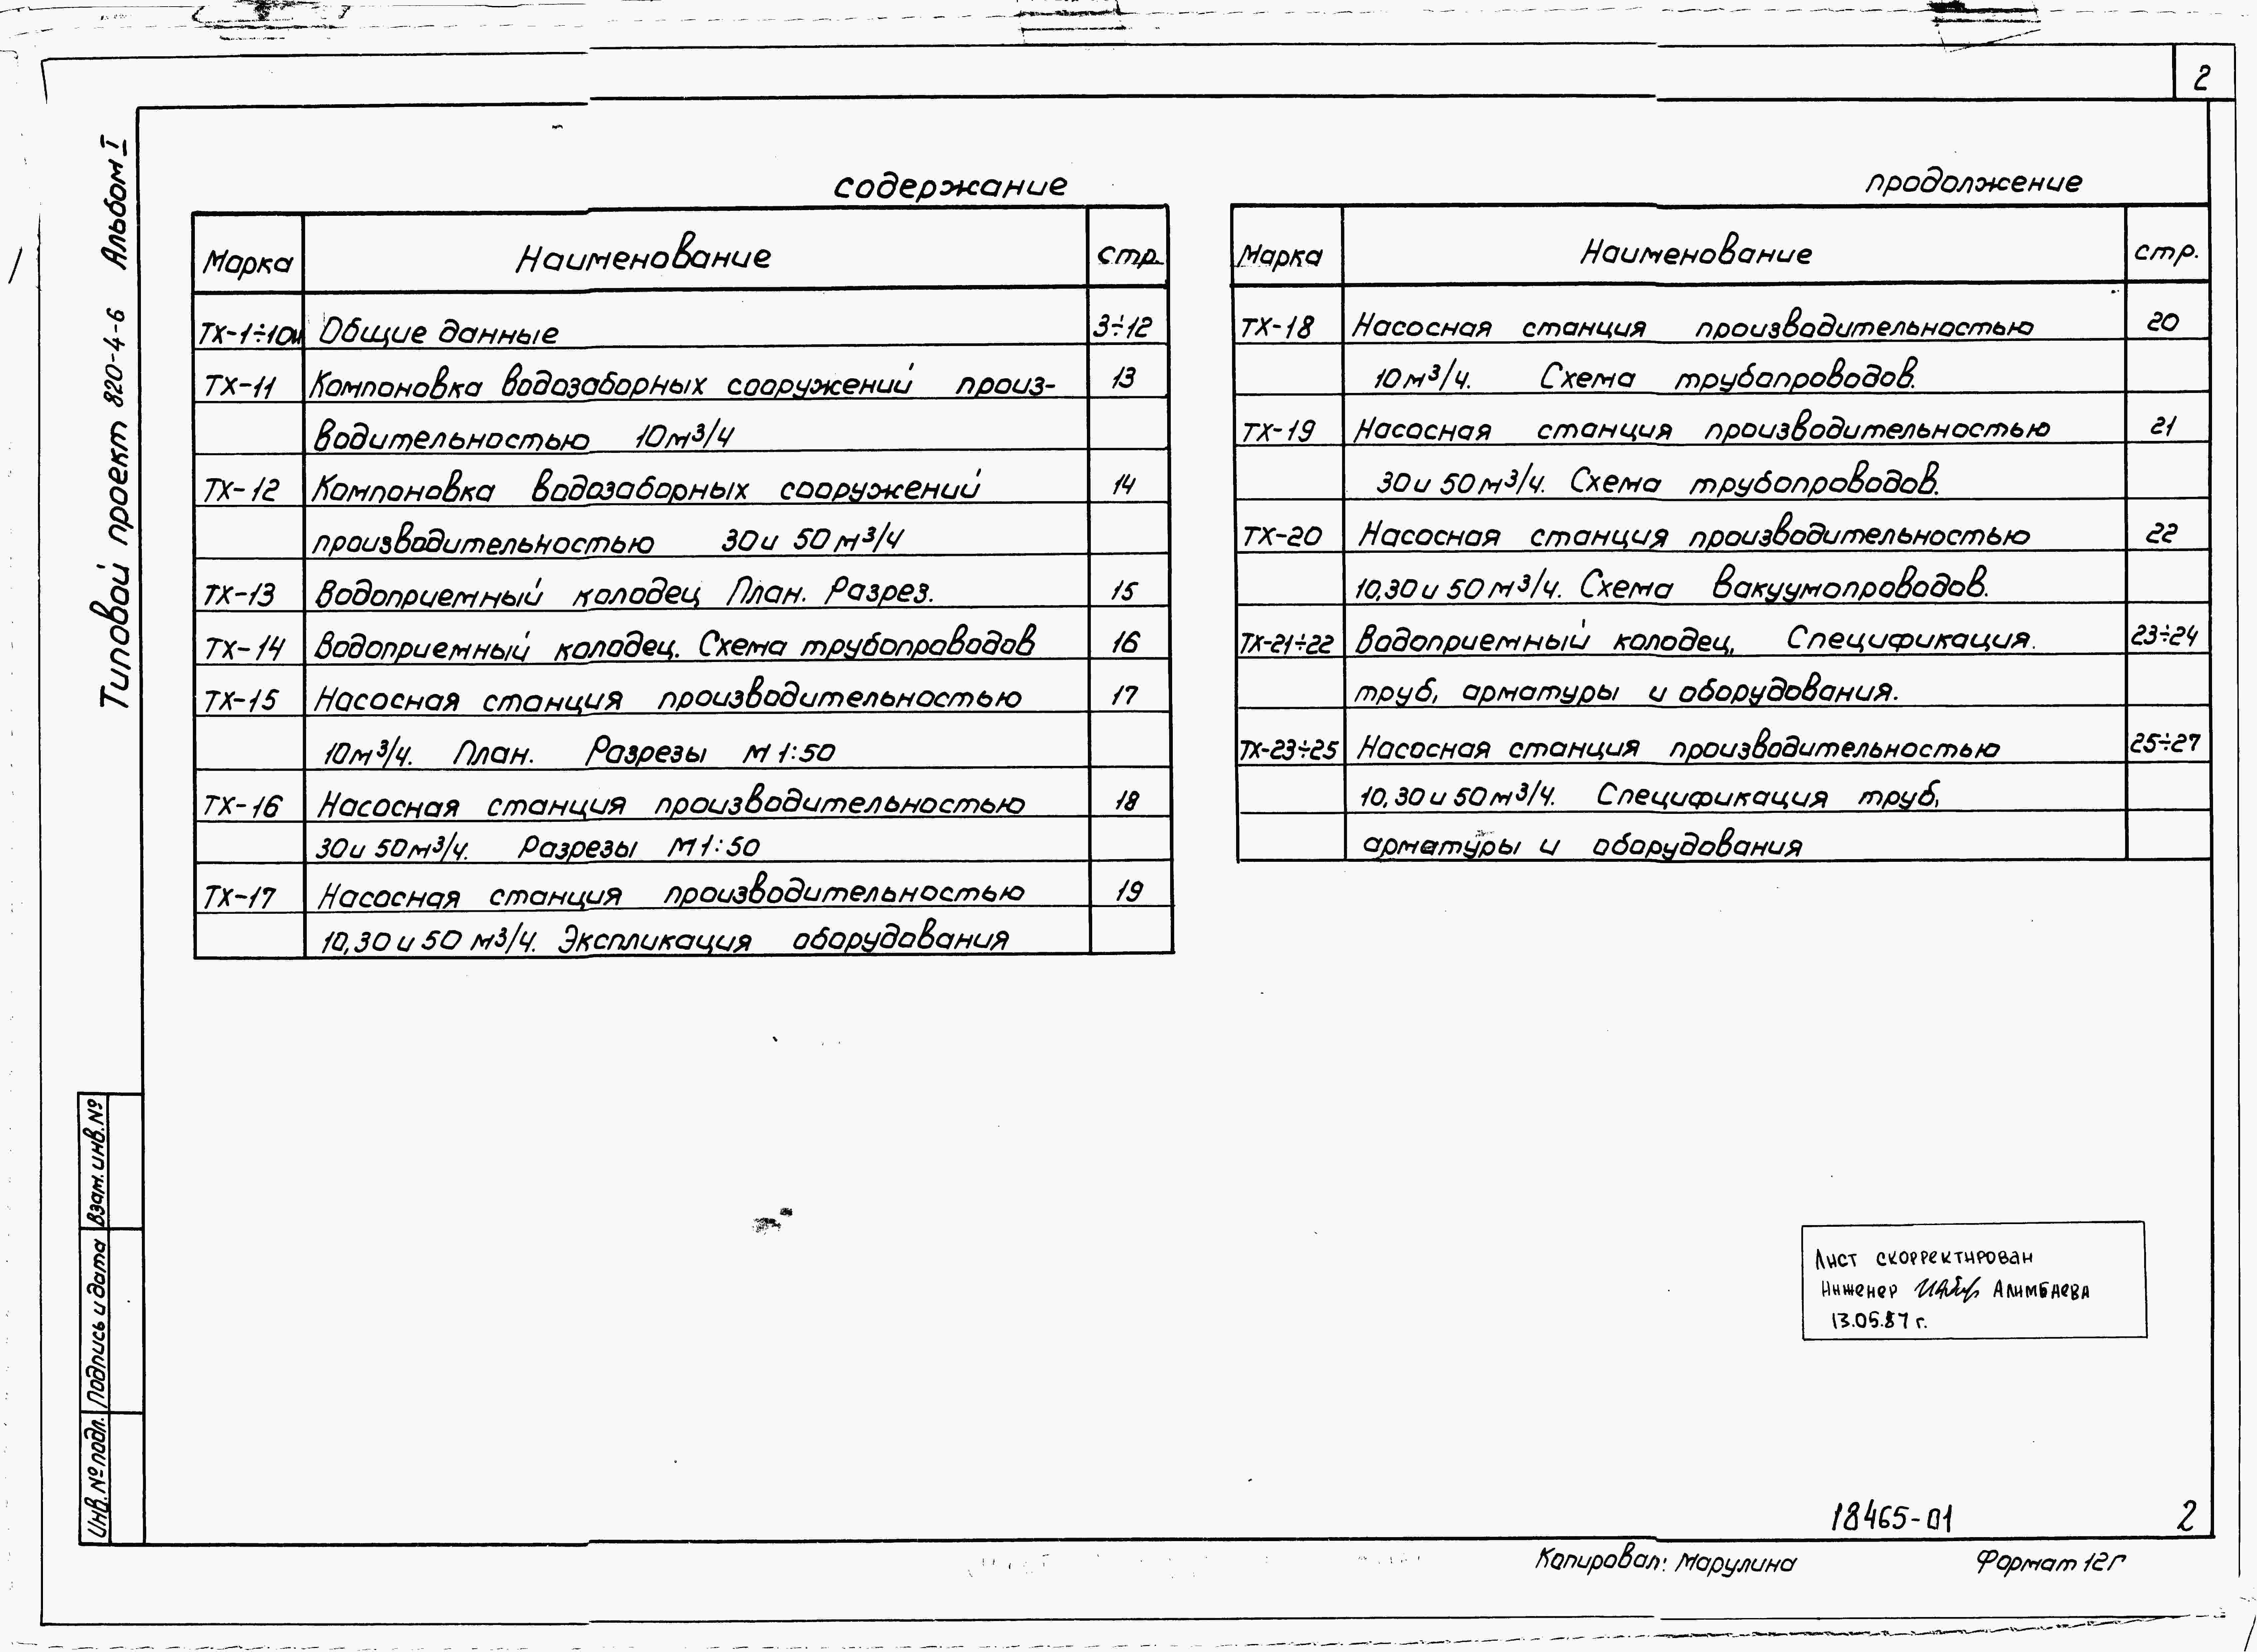 2
Типовой проект 820-4-6 Альбом I
содержание
Марка Наименование стр.
ТХ-1÷10и Общие данные 3÷12
ТХ-11 Компоновка водозаборных сооружений произ- 13
водительностью 10м³/ч
ТХ-12 Компоновка водозаборных сооружений 14
производительностью 30и 50м³/ч
ТХ-13 Водоприемный колодец План. Разрез. 15
ТХ-14 Водоприемный колодец. Схема трубопроводов 16
ТХ-15 Насосная станция производительностью 17
10м³/ч. План. Разрезы М 1:50
ТХ-16 Насосная станция производительностью 18
30и 50м³/ч. Разрезы М1:50
ТХ-17 Насосная станция производительностью 19
10,30 и 50 м³/ч. Экспликация оборудования
продолжение
Марка Наименование стр.
ТХ-18 Насосная станция производительностью 20
10м³/ч. Схема трубопроводов.
ТХ-19 Насосная станция производительностью 21
30и 50м³/ч. Схема трубопроводов.
ТХ-20 Насосная станция производительностью 22
10,30 и 50м³/ч. Схема вакуумопроводов.
ТХ-21÷22 Водоприемный колодец, Спецификация. 23÷24
труб, арматуры и оборудования.
ТХ-23÷25 Насосная станция производительностью 25÷27
10,30 и 50м³/ч. Спецификация труб,
арматуры и оборудования
Взам. инв. №
Подпись и дата
Инв. № подл.
Лист скорректирован
Инженер Алимбаева
13.05.87 г.
18465-01 2
Копировал: Марулина Формат 12г